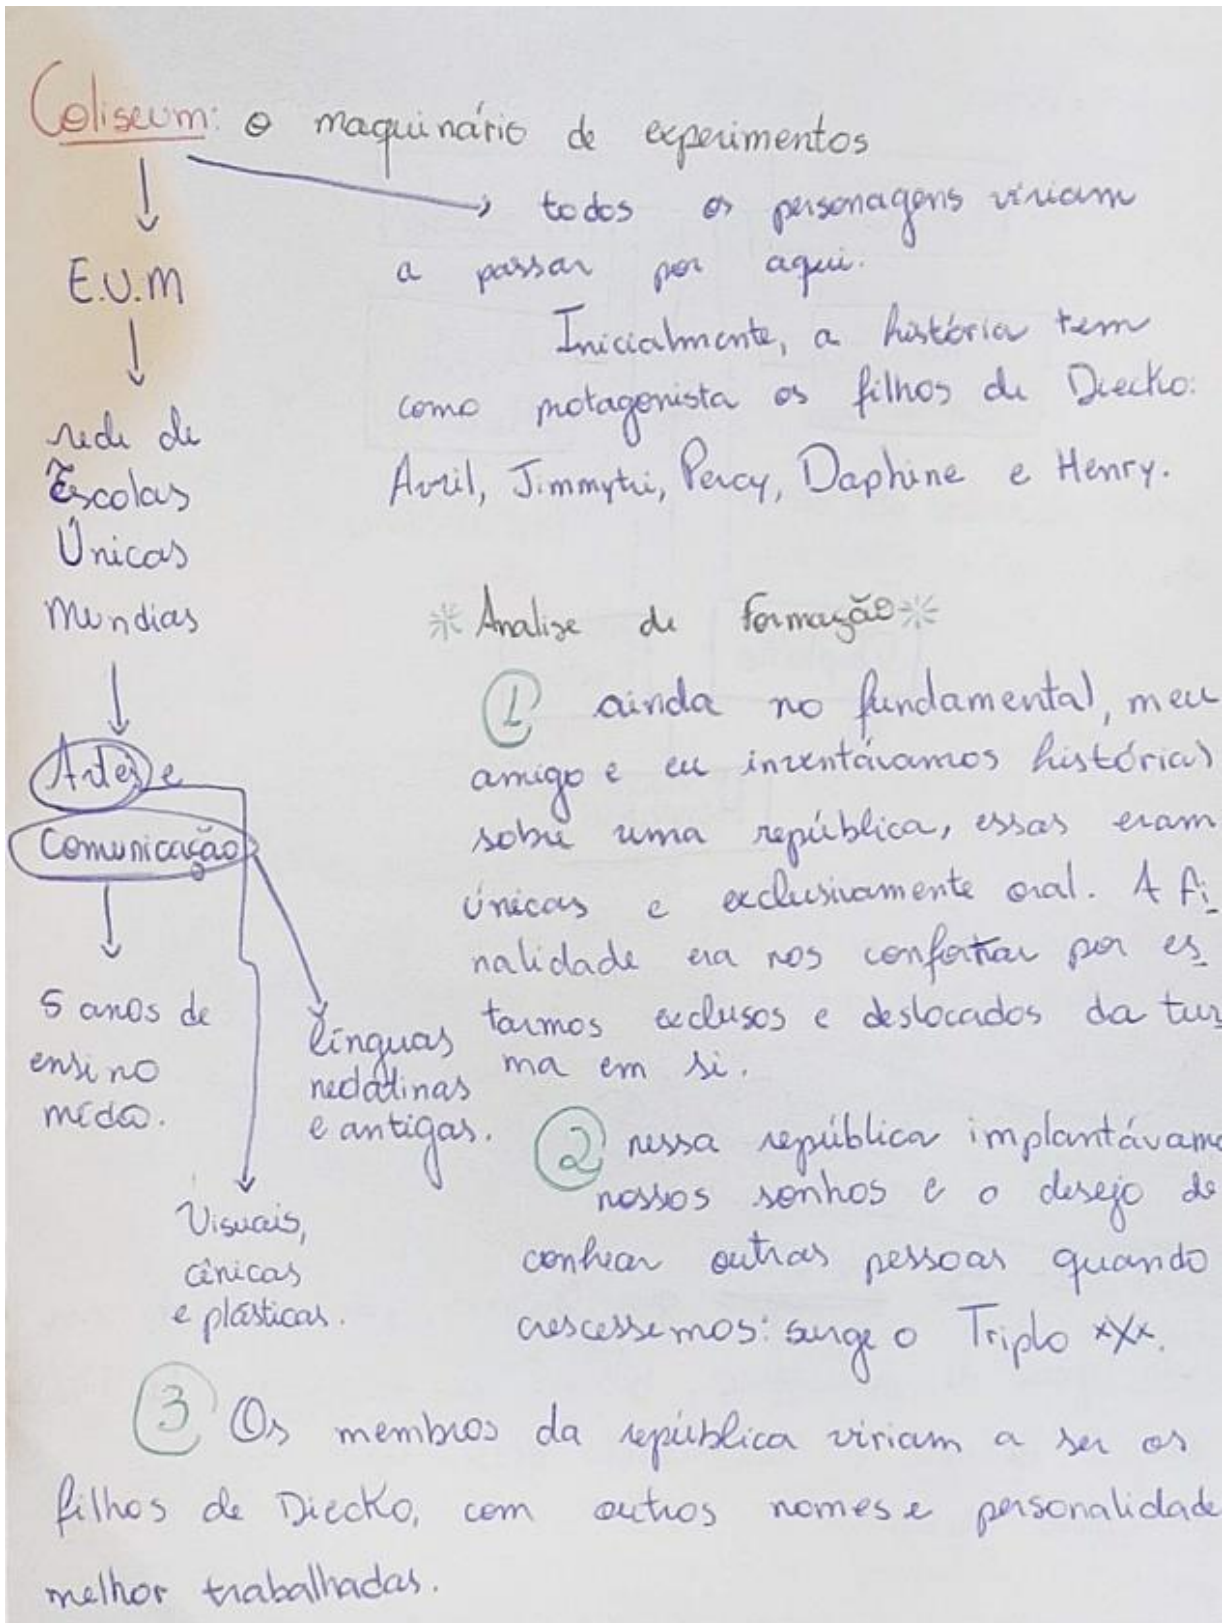 Coliseum: o maquinário de experimentos
todos os personagens viriam
a passar por aqui.
Inicialmente, a história tem
como protagonista os filhos de Diecko:
Avril, Jimmytri, Percy, Daphine e Henry.
E.U.M
rede de
Escolas
Únicas
Mundias
Artes e
Comunicação
5 anos de
ensino
médio.
línguas
nedatinas
e antigas.
Visuais,
cênicas
e plásticas.
Analise de Formação
1 ainda no fundamental, meu
amigo e eu inventávamos histórias
sobre uma república, essas eram
únicas e exclusivamente oral. A fi
nalidade era nos confortar por es
tarmos exclusos e deslocados da tur
ma em si.
2 nessa república implantávamo
nossos sonhos e o desejo de
conhecer outras pessoas quando
crescessemos: surge o Triplo xXx.
3 Os membros da república viriam a ser os
filhos de Diecko, com outros nomes e personalidade
melhor trabalhadas.